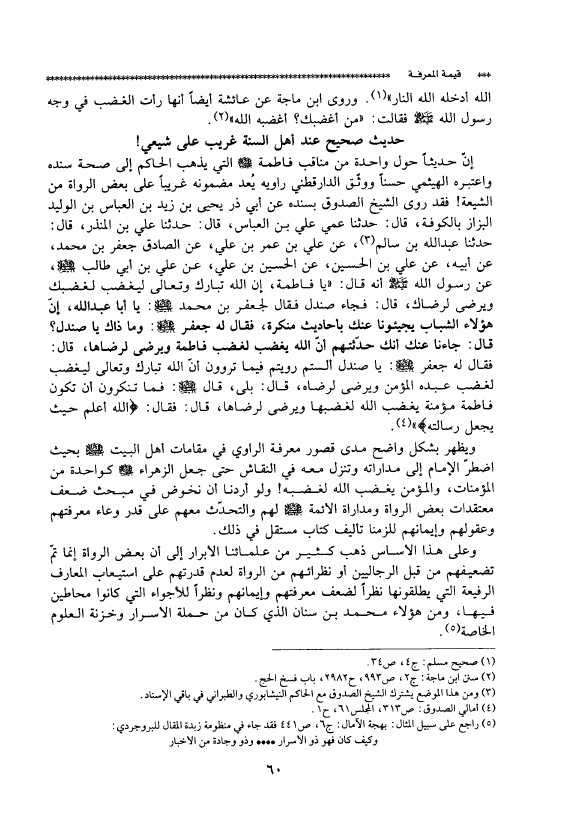 *** قيمـة المعرفـة ***
الله أدخله الله النار»(١). وروى ابن ماجة عن عـائشة أيضاً أنها رأت الغـضب في وجه
رسول الله ﷺ فقالت: «من أغضبك؟ أغضبه الله»(٢).
حديث صحيح عند أهل السنة غريب على شيعي!
إنّ حديثـاً حول واحدة من مناقب فـاطمة ﷺ التي يذهب الحـاكم إلى صحـة سنده
واعتبره الهيثمي حسناً ووثّـق الدارقطني راويه يُعد مضمونه غريبـاً على بعض الرواة من
الشيعة! فقد روى الشيخ الصدوق بسنده عن أبي ذر يحيى بن زيد بن العباس بن الوليد
البزاز بالكوفـة، قال: حدثنا عمي علي بـن العباس، قال: حـدثنا علي بـن المنذر، قال:
حدثنا عبدالله بن سالم(٣)، عن علي بن عمر بن علي، عن الصادق جعفر بن محمد،
عن أبيـه، عن علي بن الحسـين، عن الحسين بن علي، عـن علي بن أبي طالب ﷺ،
عن رسول الله ﷺ أنه قـال: «يا فـاطمة، إن الله تبارك وتعـالى ليـغضب لـغضبك
ويرضى لرضاك، قال: فـجاء صندل فـقال لجعفر بن محمـد ﷺ: يا أبا عبدالله، إنّ
هؤلاء الشباب يجيئونا عنك بأحاديث منكرة، فقال له جعفر ﷺ: وما ذاك يا صندل؟
قـال: جاءنا عنك أنك حدّثتـهم أنّ الله يغضب لغضب فاطمة ويرضى لرضـاها، قال:
فقـال له جعفر ﷺ: يا صندل ألستم رويتم فيمـا تروون أنّ الله تبارك وتعالى ليـغضب
لغضب عبـده المؤمن ويرضى لرضاه، قـال: بلى، قـال ﷺ: فـما تنـكرون أن تكون
فاطمـة مؤمنة يغـضب الله لغضبـها ويرضى لرضـاها، قـال: فقـال: ﴿الله أعلم حيث
يجعل رسالته﴾»(٤).
ويظهر بشكل واضح مدى قصور معرفة الراوي في مقامات أهل البيت ﷺ بحيث
اضطرّ الإمام إلى مداراته وتنزل معـه في النقاش حتى جعل الزهراء ﷺ كـواحدة من
المؤمنات، والمـؤمن يغـضب الله لغـضبـه! ولو أردنـا أن نخـوض في مـبحث ضعف
معتقدات بعض الرواة ومداراة الأئمة ﷺ لهم والتحدّث معهم على قدر وعاء معرفتهم
وعقولهم وإيمانهم للزمنا تأليف كتاب مستقل في ذلك.
وعلى هـذا الأساس ذهب كـثـيـر من عـلمـائنـا الأبرار إلى أن بعـض الرواة إنما تمّ
تضعيفـهم من قبل الرجاليين أو نظرائـهم من الرواة لعدم قدرتهم على استيعـاب المعارف
الرفيعة التي يطلقونها نظراً لضعف معرفتهم وإيمانهم ونظراً للأجواء التي كانوا محاطين
فيـها، ومن هؤلاء مـحمـد بن سنان الذي كـان من حـملة الأسـرار وخزنة العلوم
الخاصة(٥).
(١) صحيح مسلم: ج٤، ص٣٤.
(٢) سنن ابن ماجة: ج٢، ص٩٩٣، ح٢٩٨٢، باب فسخ الحج.
(٣) ومن هذا الموضع يشترك الشيخ الصدوق مع الحاكم النيشابوري والطبراني في باقي الإسناد.
(٤) أمالي الصدوق: ص٣١٣، المجلس٦١، ح١.
(٥) راجع على سبيل المثال: بهجة الآمال: ج٦، ص٤٤١ فقد جاء في منظومة زبدة المقال للبروجردي:
وكيف كان فهو ذو الأسرار **** وذو وجادة من الأخبار
٦٠